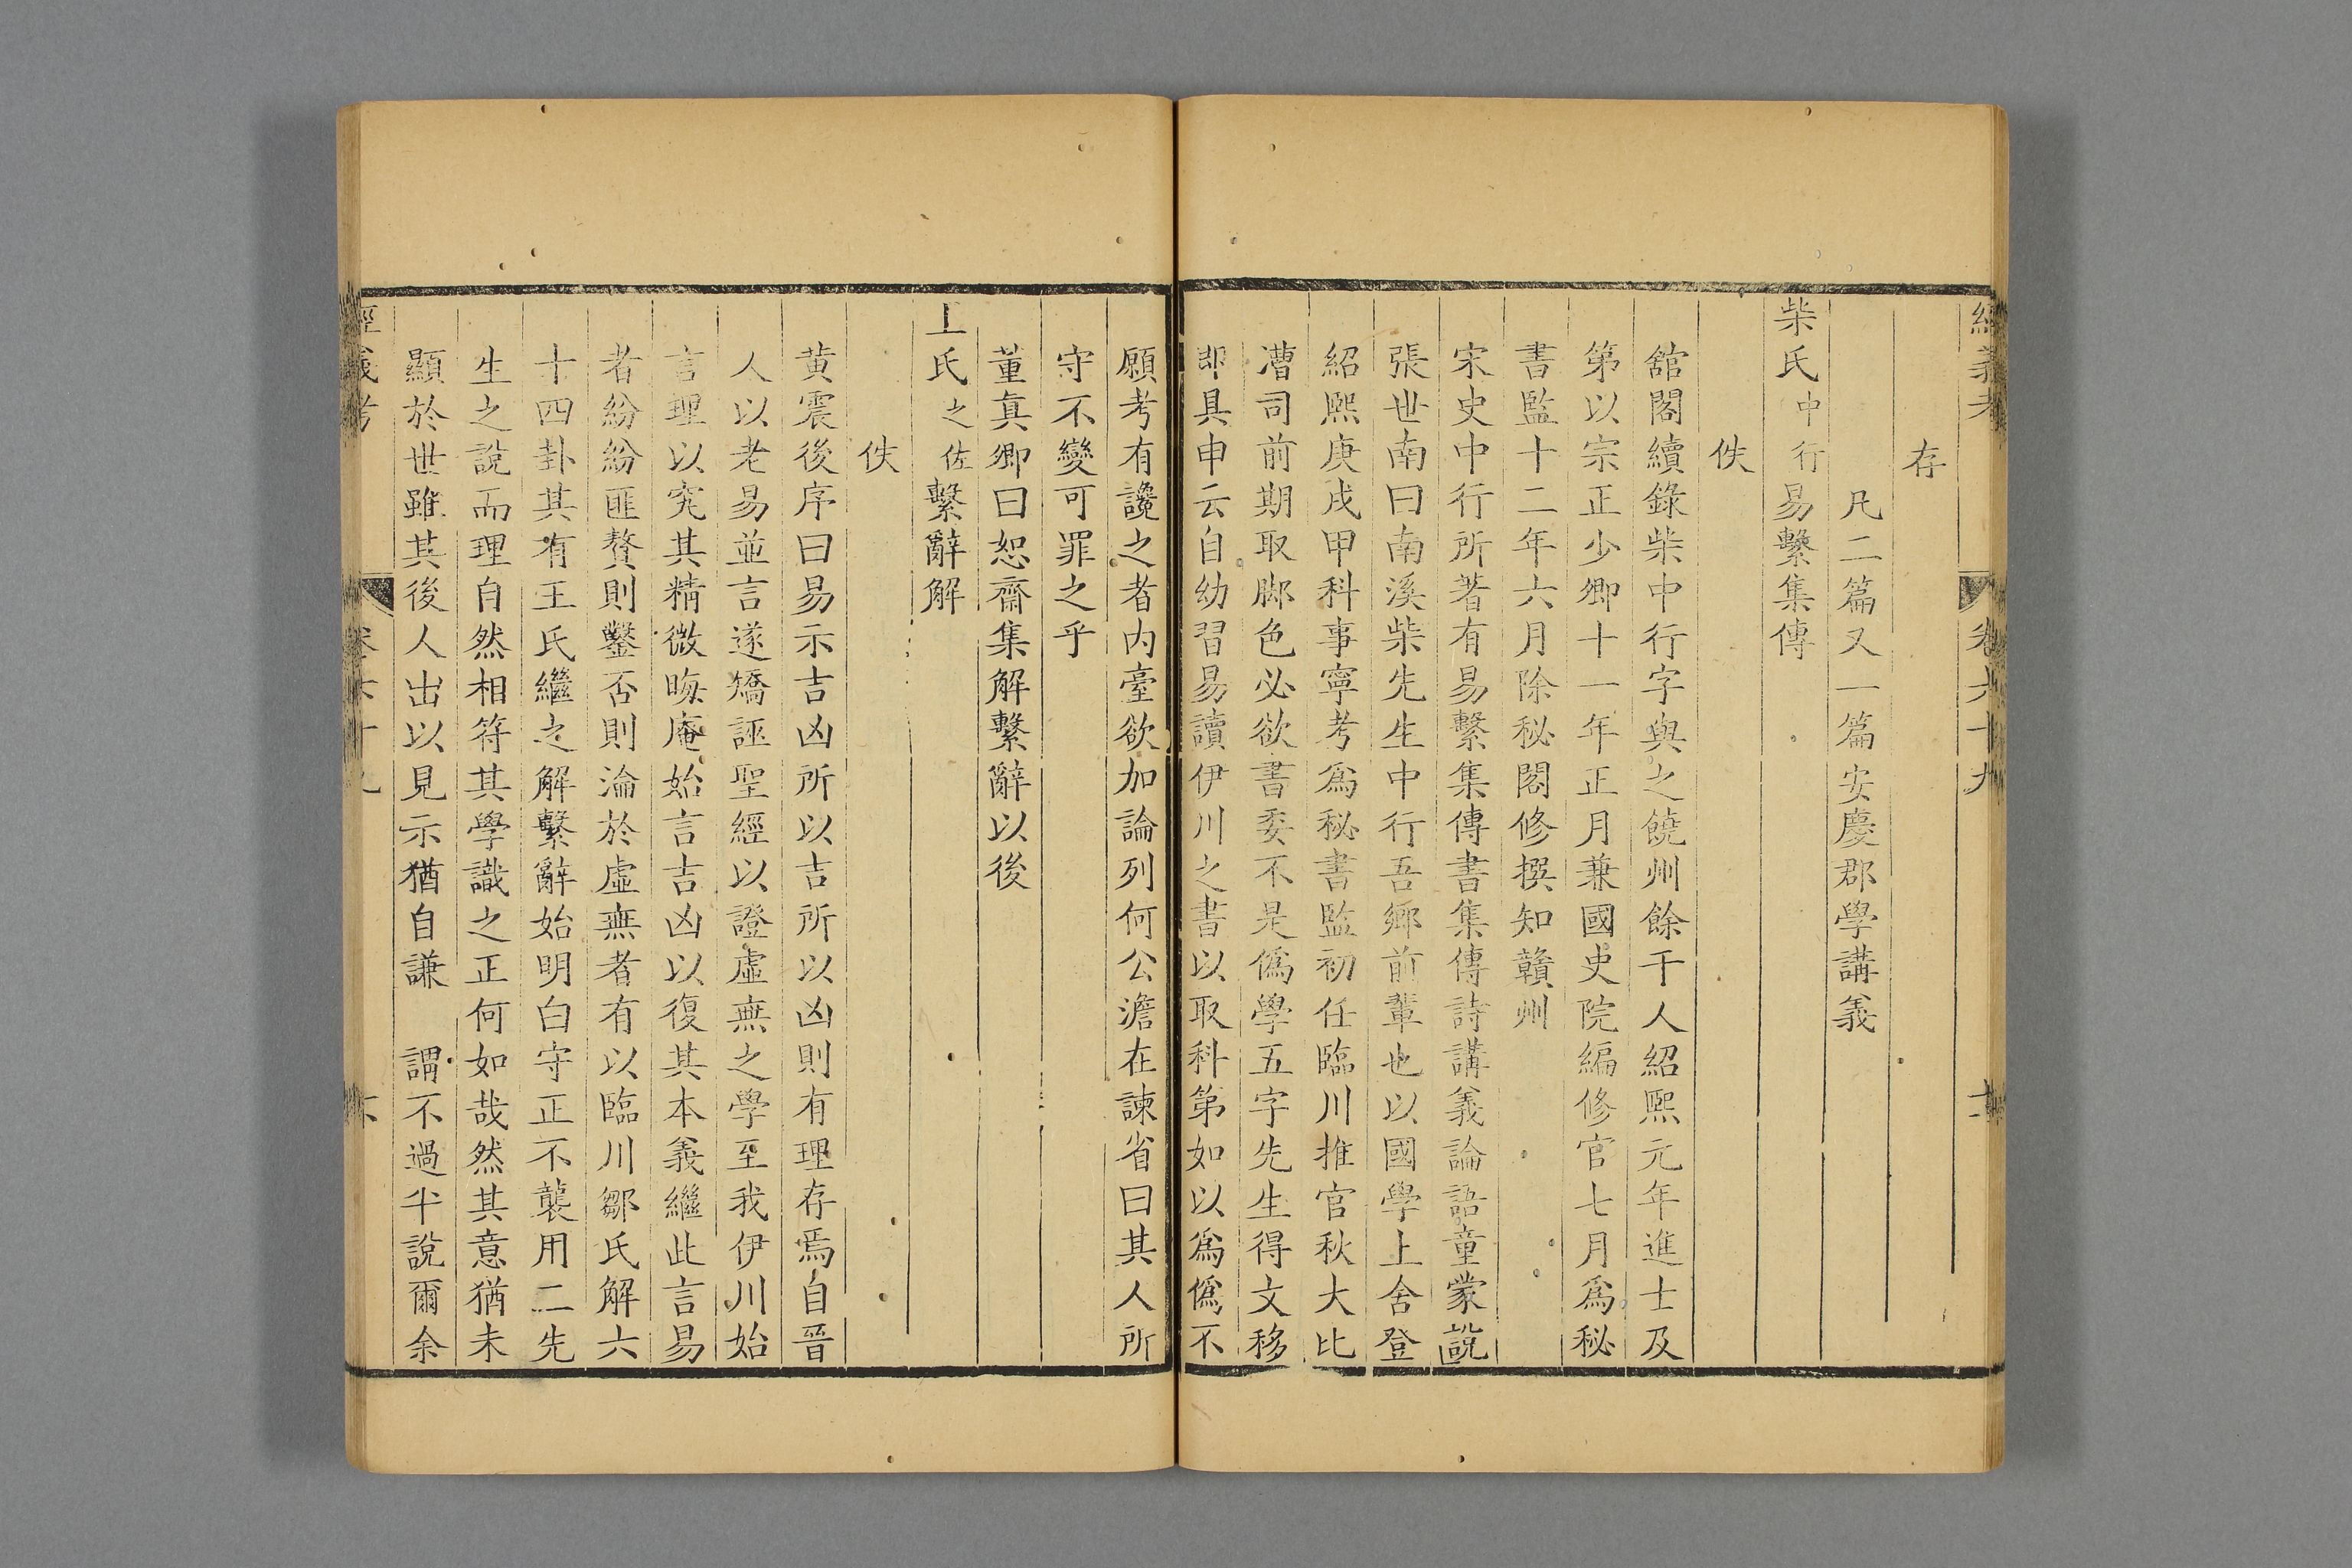 經義考 卷六十九
存
凡二篇又一篇安慶郡學講義
柴氏中行易繫集傳
佚
舘閣續錄柴中行字與之饒州餘干人紹熙元年進士及
第以宗正少卿十一年正月兼國史院編修官七月爲秘
書監十二年六月除秘閣修撰知贛州
宋史中行所著有易繫集傳書集傳詩講義論語童蒙說
張世南曰南溪柴先生中行吾鄉前輩也以國學上舍登
紹熙庚戌甲科事寧考爲秘書監初任臨川推官秋大比
漕司前期取脚色必欲書委不是僞學五字先生得文移
即具申云自幼習易讀伊川之書以取科第如以爲僞不
願考有讒之者內臺欲加論列何公澹在諫省曰其人所
守不變可罪之乎
董真卿曰恕齋集解繫辭以後
氏之佐繫辭解
佚
黄震後序曰易示吉凶所以吉所以凶則有理存焉自晉
人以老易並言遂矯誣聖經以證虛無之學至我伊川始
言理以究其精微晦庵始言吉凶以復其本義繼此言易
者紛紛匪贅則鑿否則淪於虛無者有以臨川鄒氏解六
十四卦其有王氏繼之解繫辭始明白守正不襲用二先
生之說而理自然相符其學識之正何如哉然其意猶未
顯於世雖其後人出以見示猶自謙 謂不過半說爾余
經義考 卷六十九